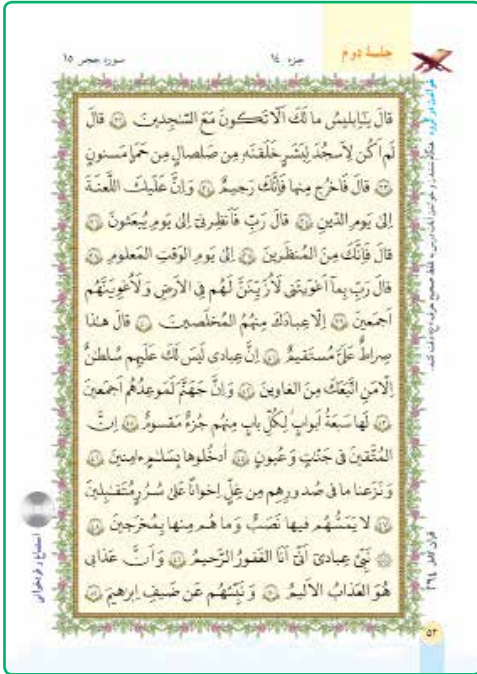 جلسهٔ دوم
جزء ١٤
سورهٔ حجر ١٥
قالَ يٰٓاِبليسُ ما لَكَ اَلّا تَكونَ مَعَ السّٰجِدينَ ٣٢ قالَ
لَم اَكُن لِاَسجُدَ لِبَشَرٍ خَلَقتَهٗ مِن صَلصالٍ مِن حَمَاٍ مَسنونٍ
٣٣ قالَ فَاخرُج مِنها فَاِنَّكَ رَجيمٌ ٣٤ وَ اِنَّ عَلَيكَ اللَّعنَةَ
اِلىٰ يَومِ الدّينِ ٣٥ قالَ رَبِّ فَاَنظِرنى اِلىٰ يَومِ يُبعَثونَ ٣٦
قالَ فَاِنَّكَ مِنَ المُنظَرينَ ٣٧ اِلىٰ يَومِ الوَقتِ المَعلومِ ٣٨
قالَ رَبِّ بِمآ اَغوَيتَنى لَاُزَيِّنَنَّ لَهُم فِى الاَرضِ وَ لَاُغوِيَنَّهُم
اَجمَعينَ ٣٩ اِلّا عِبادَكَ مِنهُمُ المُخلَصينَ ٤٠ قالَ هٰذا
صِراطٌ عَلَىَّ مُستَقيمٌ ٤١ اِنَّ عِبادى لَيسَ لَكَ عَلَيهِم سُلطٰنٌ
اِلّا مَنِ اتَّبَعَكَ مِنَ الغاوينَ ٤٢ وَ اِنَّ جَهَنَّمَ لَمَوعِدُهُم اَجمَعينَ
٤٣ لَها سَبعَةُ اَبوابٍ لِكُلِّ بابٍ مِنهُم جُزءٌ مَقسومٌ ٤٤ اِنَّ
المُتَّقينَ فى جَنّٰتٍ وَ عُيونٍ ٤٥ اُدخُلوها بِسَلٰمٍ ءامِنينَ ٤٦
وَ نَزَعنا ما فى صُدورِهِم مِن غِلٍّ اِخوانًا عَلىٰ سُرُرٍ مُتَقٰبِلينَ
٤٧ لا يَمَسُّهُم فيها نَصَبٌ وَ ما هُم مِنها بِمُخرَجينَ ٤٨
نَبِّئ عِبادى اَنّى اَنَا الغَفورُ الرَّحيمُ ٤٩ وَ اَنَّ عَذابى
هُوَ العَذابُ الاَليمُ ٥٠ وَ نَبِّئهُم عَن ضَيفِ اِبرٰهيمَ ٥١
استماع و فردخوانی
٥٢